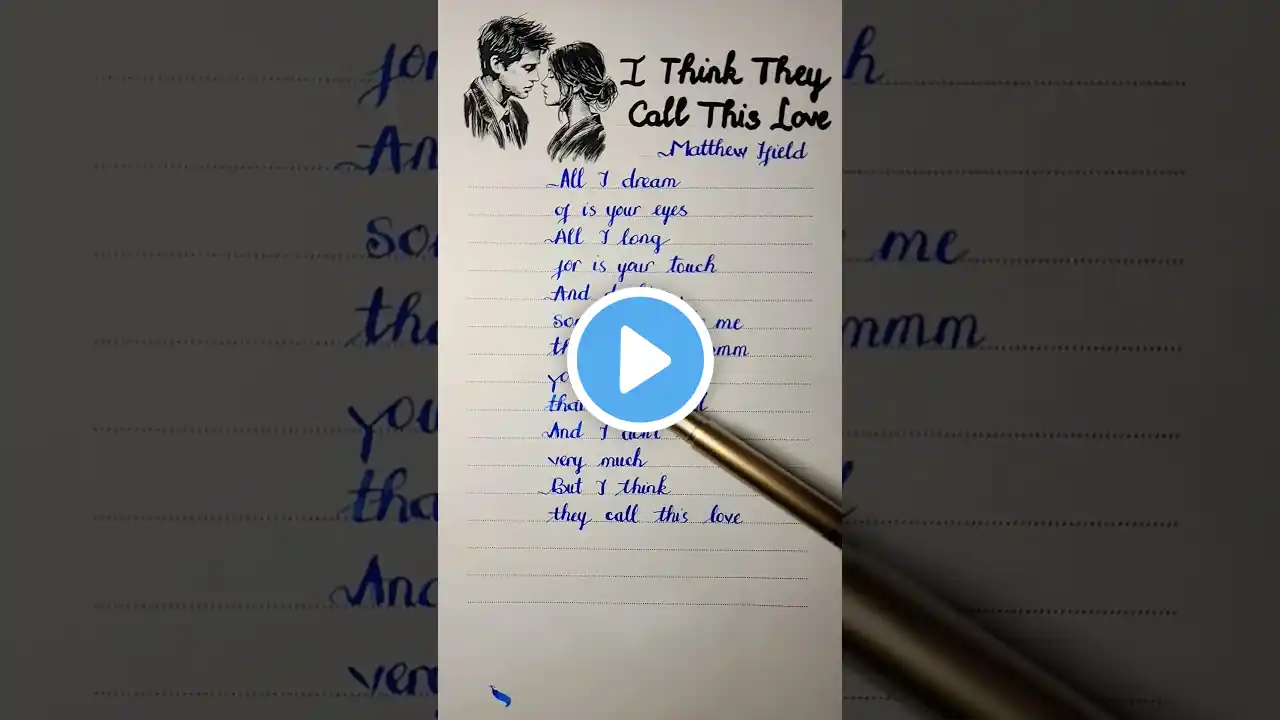 I Think They
Call This Love
Matthew Ifield
All I dream
of is your eyes
All I long
for is your touch
And
me
mmm
you
than
And I don't
very much
But I think
they call this love
for
h
me
mmm
you
very